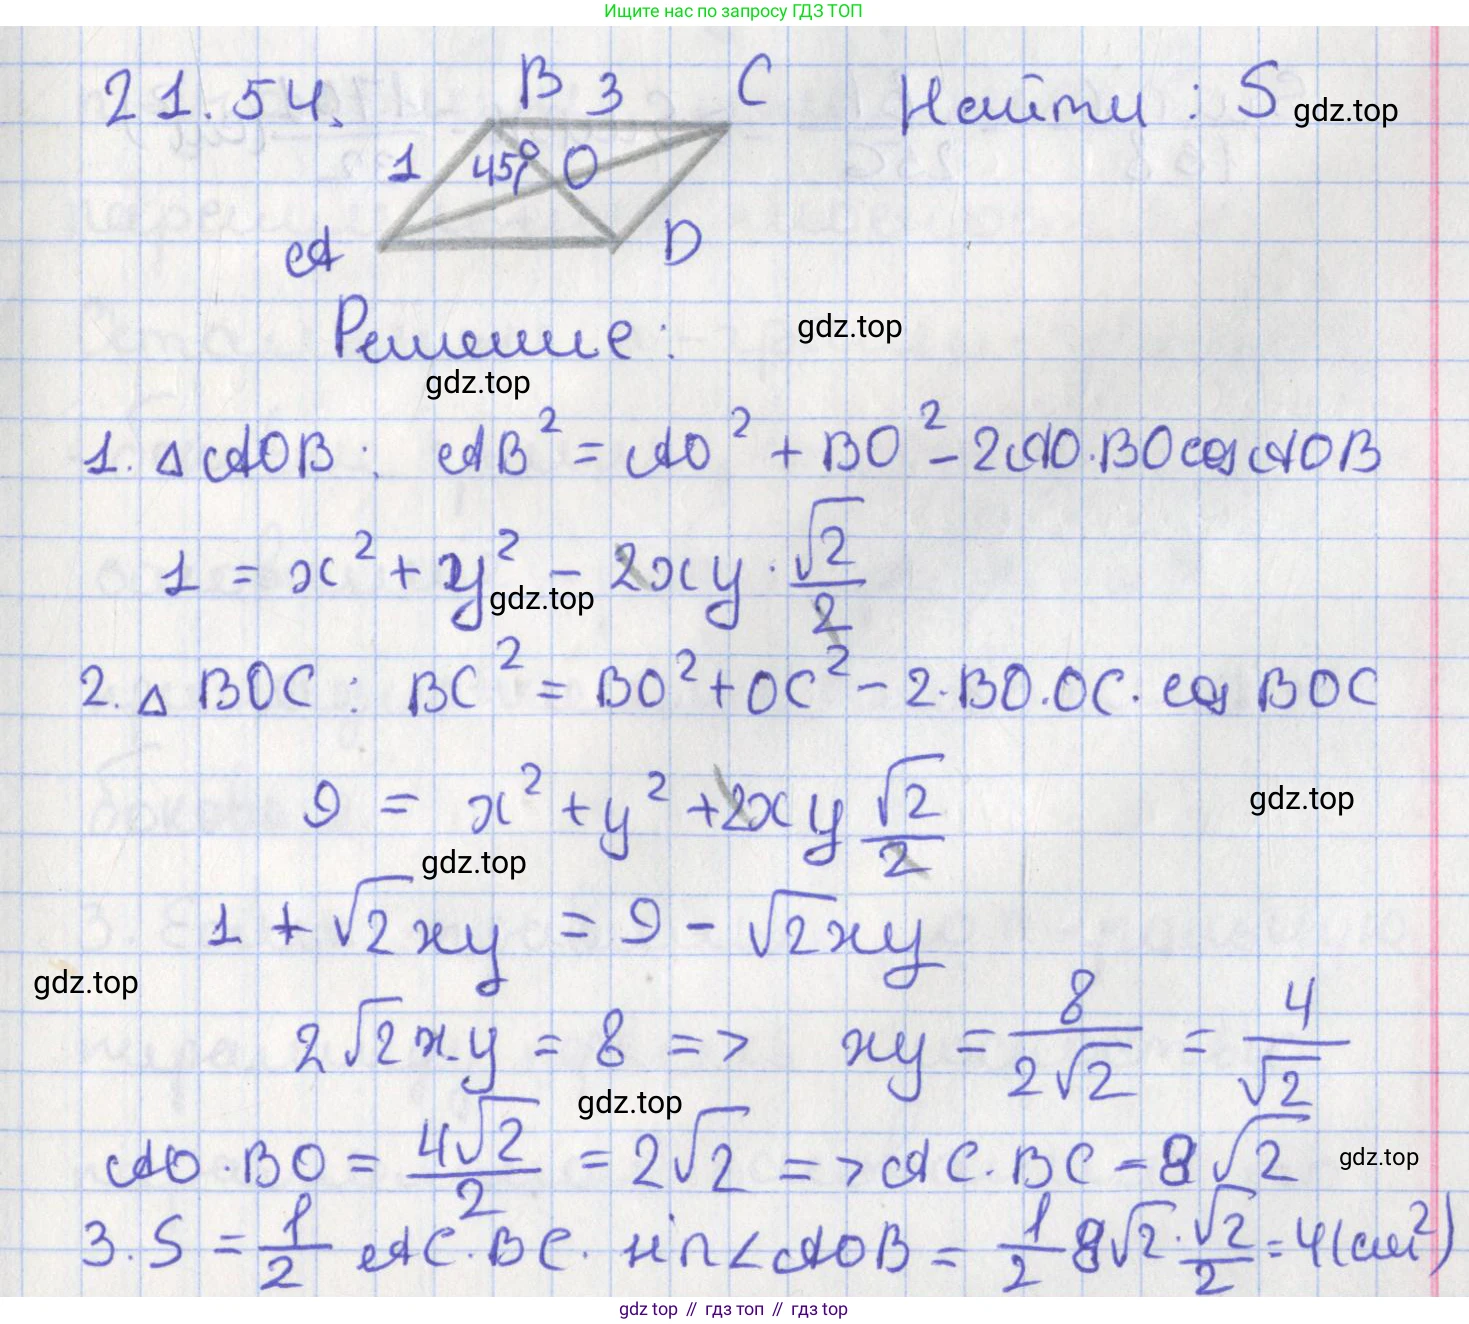 Ищите нас по запросу ГДЗ ТОП
21.54. B 3 C Найти: S
gdz.top
1 45° O
A D
Решение:
gdz.top
gdz.top
1. △AOB: AB² = AO² + BO² - 2AO·BO cos AOB
1 = x² + y² - 2xy · √2/2
gdz.top
2. △ BOC: BC² = BO² + OC² - 2·BO·OC· cos BOC
9 = x² + y² + 2xy √2/2
gdz.top
gdz.top
1 + √2xy = 9 - √2xy
gdz.top
2√2xy = 8 => xy = 8/2√2 = 4/√2
gdz.top
AO·BO = 4√2/2 = 2√2 => AC·BC = 8√2
gdz.top
3. S = 1/2 AC·BC· sin∠AOB = 1/2 8√2·√2/2 = 4(см²)
gdz top // гдз топ // гдз top